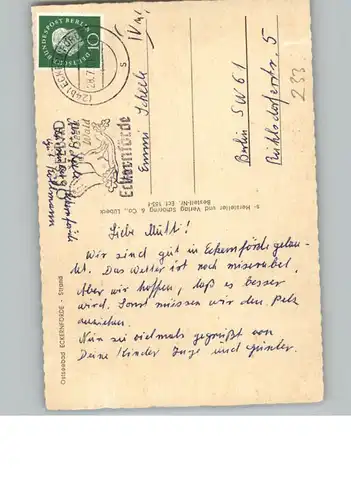 Liebe Mutti!
Wir sind gut in Eckernförde gelan-
det. Das Wetter ist noch miserabel.
Aber wir hoffen, daß es besser
wird. Sonst müssen wir den Pelz
ausziehen.
Nun sei vielmals gegrüßt von
Deine Kinder Inge und Günter.
Emmi
IV mi.
Berlin SW 61
Ruhlsdorferstr. 5
233
DEUTSCHE BUNDESPOST BERLIN
10
(24b) ECK
28.7
Wald
Eckernförde
Hersteller und Verlag Schöning & Co., Lübeck
Bestell-Nr. Ect 165
Ostseebad ECKERNFÖRDE - Strand